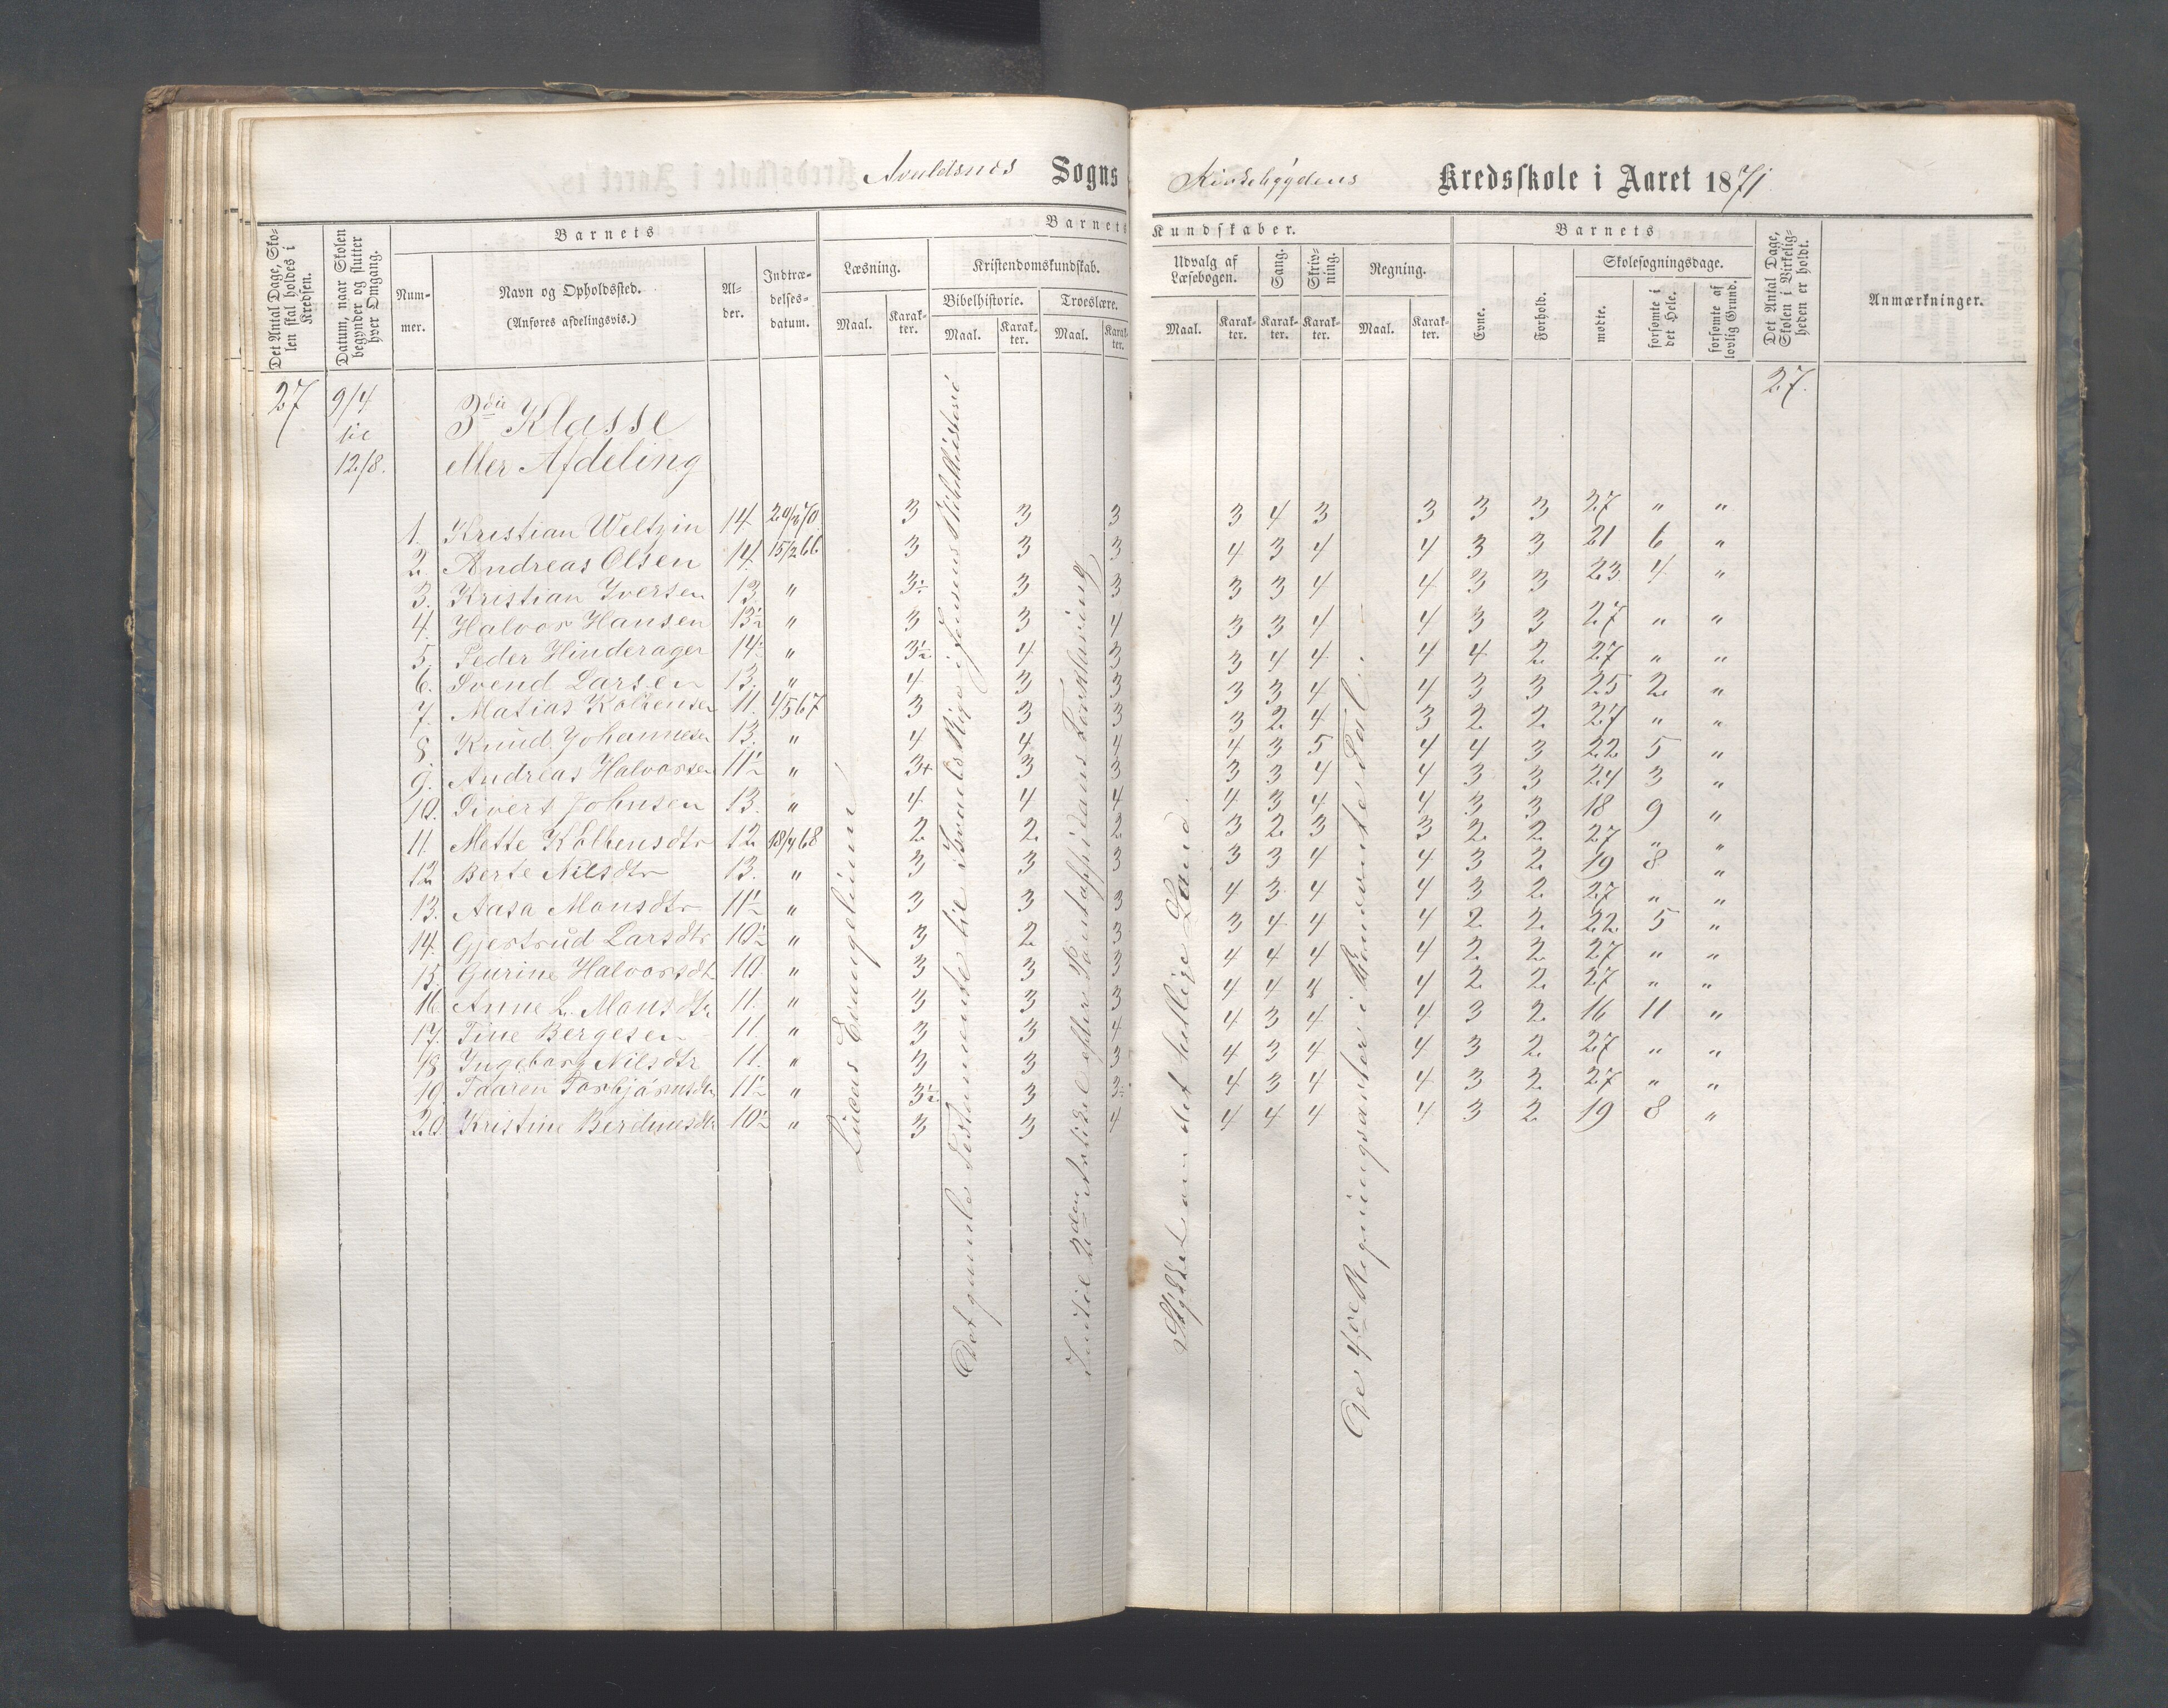 Avaldsnes Sogns Kirkebygdens Kredsskole i Aaret 1871.
Det Antal Dage, Skolen skal holdes i Kredsen.
Datum, naar Skolen begynder og slutter hver Omgang.
Barnets
Nummer.
Navn og Opholdssted.
(Anføres afdelingsvis.)
Alder.
Indtrædelsesdatum.
Barnets Kundskaber.
Læsning.
Maal. Karakter.
Kristendomskundskab.
Bibelhistorie.
Maal. Karakter.
Troeslære.
Maal. Karakter.
Udvalg af Læsebogen.
Maal. Karakter.
Sang.
Karakter.
Skrivning.
Karakter.
Regning.
Maal. Karakter.
Barnets
Evne.
Forhold.
Skolesøgningsdage.
mødte.
forsømte i det Hele.
forsømte af lovlig Grund.
Det Antal Dage, Skolen i Virkeligheden er holdt.
Anmærkninger.
27 9/4 til 12/8.
3die Klasse
eller Afdeling
27.
1. Kristian Weltzin 14 20/3 70 3 3 3 3 4 3 3 3 3 27 " "
2. Andreas Olsen 14 15/2 66 3 3 3 4 3 4 4 3 3 21 6 "
3. Kristian Iversen 13 " 3½ 3 3 3 3 4 4 3 3 23 4 "
4. Halvor Hansen 13½ " 3 3 4 3 3 4 4 3 3 27 " "
5. Peder Hinderager 14½ " 3½ 4 3 3 4 4 4 4 2 27 " "
6. Svend Larsen 13. " 4 3 3 3 3 4 4 3 3 25 2 "
7. Matias Kolbensen 11. 4/5 67 3 3 3 3 2 4 3 2 2 27 " "
8. Knud Johannesen 13. " 4 4 4 4 3 5 4 4 3 22 5 "
9. Andreas Halvorsen 11½ " 3+ 3 3 3 3 4 4 3 3 24 3 "
10. Sivert Johnsen 13. " 4 4 4 4 3 4 4 3 3 18 9 "
11. Mette Kolbensdtr 12 18/4 68 2 2 2 3 2 3 3 2 2 27 " "
12 Berte Nilsdtr 13. " 3 3 3 3 3 4 4 3 2 19 8 "
13. Aasa Monsdtr 11½ " 3 3 3 4 3 4 4 3 2 27 " "
14. Gjertrud Larsdtr 10½ " 3 2 3 3 4 4 4 2 2 22 5 "
15. Gurine Halvorsdtr 10 " 3 3 3 4 4 4 4 2 2 27 " "
16 Anne L. Monsdtr 11. " 3 3 3 4 4 4 4 2 2 27 " "
17. Tine Bergesen 11. " 3 3 4 4 3 4 4 3 2 16 11 "
18 Ingeborg Nilsdtr 11. " 3 3 3 4 3 4 4 3 2 27 " "
19. Taaren Torbjørnsdtr 11½ " 3½ 3 3½ 4 3 4 4 3 2 27 " "
20 Kristine 10½ " 3 3 4 4 4 4 4 3 2 19 8 "
Lucas Evangelium
Det gamle Testamente til Israels Rige i Jensens Bibelhistorie
Indtil 2den Artikel efter Pontoppidans Forklaring
Stykket om det hellige Land
De 4 Regningsarter i benævnte Tal.